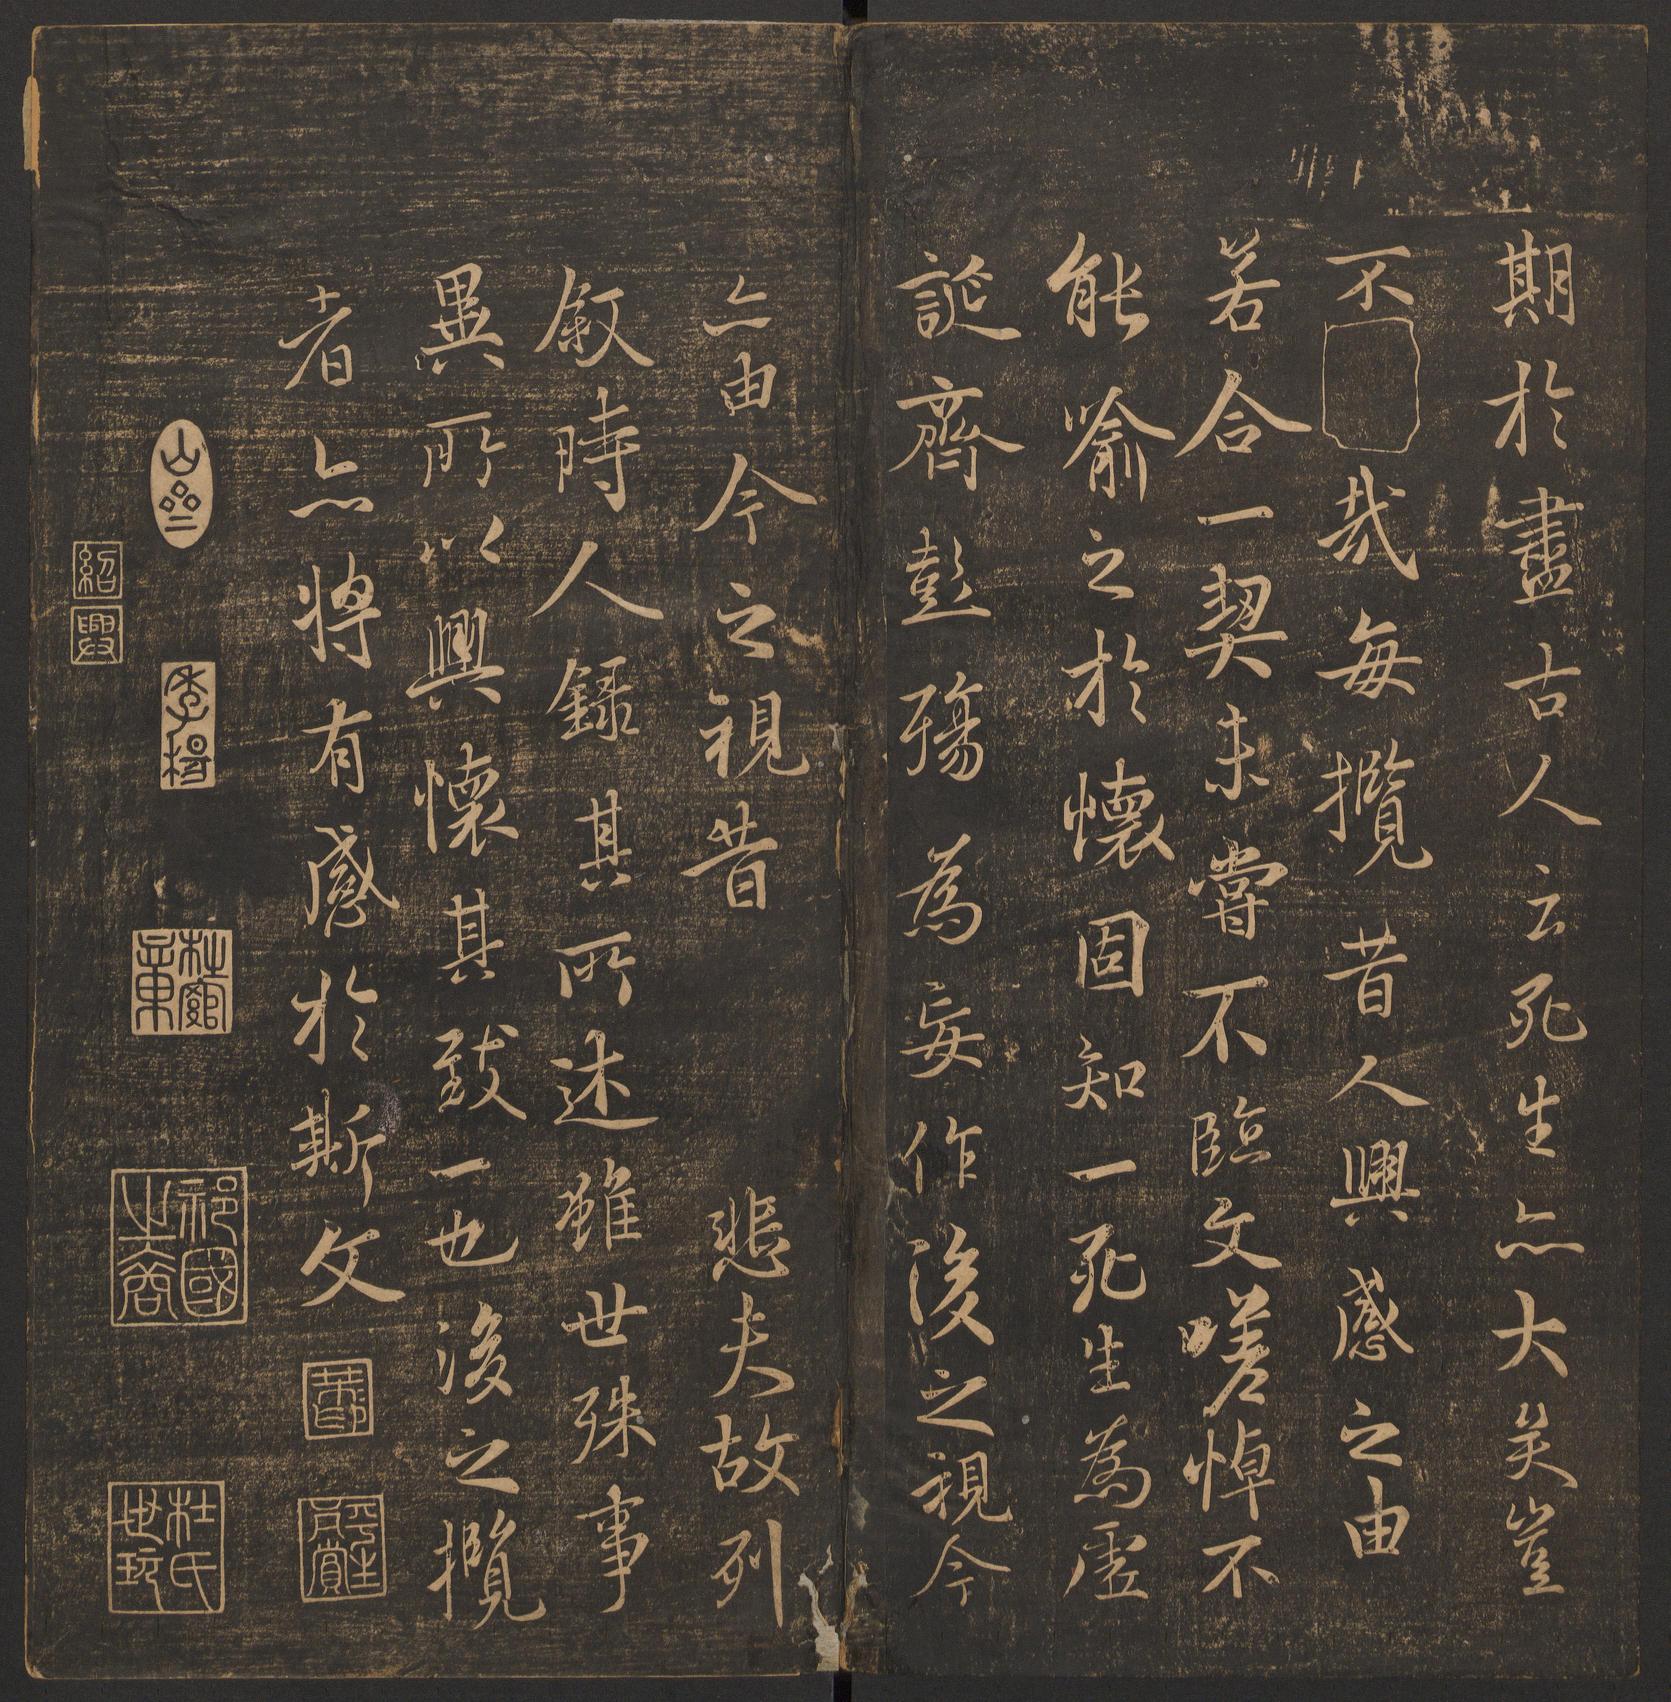 期於盡古人云死生亦大矣豈
不哉每攬昔人興感之由
若合一契未嘗不臨文嗟悼不
能喻之於懷固知一死生為虛
誕齊彭殤為妄作後之視今
亦由今之視昔悲夫故列
叙時人錄其所述雖世殊事
異所以興懷其致一也後之攬
者亦將有感於斯文
祁國之裔
杜氏世玩
紹興